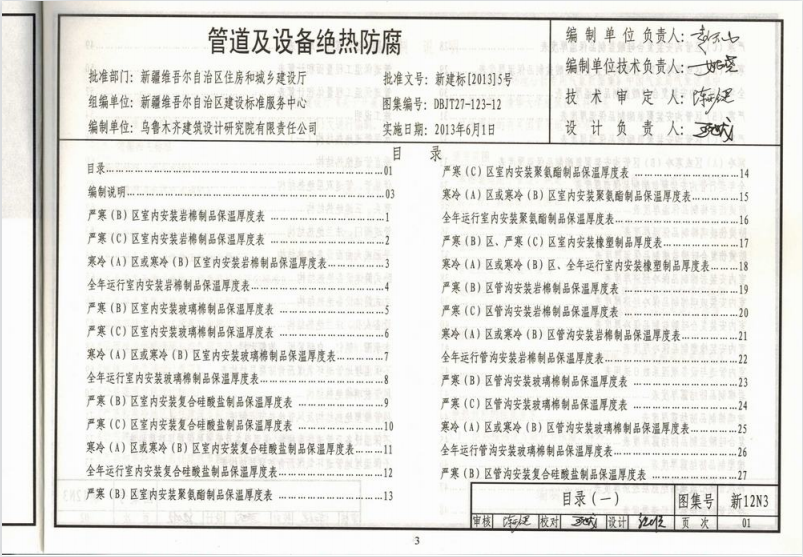 管道及设备绝热防腐
批准部门：新疆维吾尔自治区住房和城乡建设厅
批准文号：新建标[2013]5号
组编单位：新疆维吾尔自治区建设标准服务中心
图集编号：DBJT27-123-12
编制单位：乌鲁木齐建筑设计研究院有限责任公司
实施日期：2013年6月1日
编制单位负责人：
编制单位技术负责人：
技术审定人：
设计负责人：
目 录
目录……01
编制说明……03
严寒（B）区室内安装岩棉制品保温厚度表……1
严寒（C）区室内安装岩棉制品保温厚度表……2
寒冷（A）区或寒冷（B）区室内安装岩棉制品保温厚度表……3
全年运行室内安装岩棉制品保温厚度表……4
严寒（B）区室内安装玻璃棉制品保温厚度表……5
严寒（C）区室内安装玻璃棉制品保温厚度表……6
寒冷（A）区或寒冷（B）区室内安装玻璃棉制品保温厚度表……7
全年运行室内安装玻璃棉制品保温厚度表……8
严寒（B）区室内安装复合硅酸盐制品保温厚度表……9
严寒（C）区室内安装复合硅酸盐制品保温厚度表……10
寒冷（A）区或寒冷（B）区室内安装复合硅酸盐制品保温厚度表……11
全年运行室内安装复合硅酸盐制品保温厚度表……12
严寒（B）区室内安装聚氨酯制品保温厚度表……13
严寒（C）区室内安装聚氨酯制品保温厚度表……14
寒冷（A）区或寒冷（B）区室内安装聚氨酯制品保温厚度表……15
全年运行室内安装聚氨酯制品保温厚度表……16
严寒（B）区、严寒（C）区室内安装橡塑制品厚度表……17
寒冷（A）区或寒冷（B）区、全年运行室内安装橡塑制品厚度表……18
严寒（B）区管沟安装岩棉制品保温厚度表……19
严寒（C）区管沟安装岩棉制品保温厚度表……20
寒冷（A）区或寒冷（B）区管沟安装岩棉制品保温厚度表……21
全年运行管沟安装岩棉制品保温厚度表……22
严寒（B）区管沟安装玻璃棉制品保温厚度表……23
严寒（C）区管沟安装玻璃棉制品保温厚度表……24
寒冷（A）区或寒冷（B）区管沟安装玻璃棉制品保温厚度表……25
全年运行管沟安装玻璃棉制品保温厚度表……26
严寒（B）区管沟安装复合硅酸盐制品保温厚度表……27
目录（一） 图集号 新12N3
审核 校对 设计 页 次 01
3